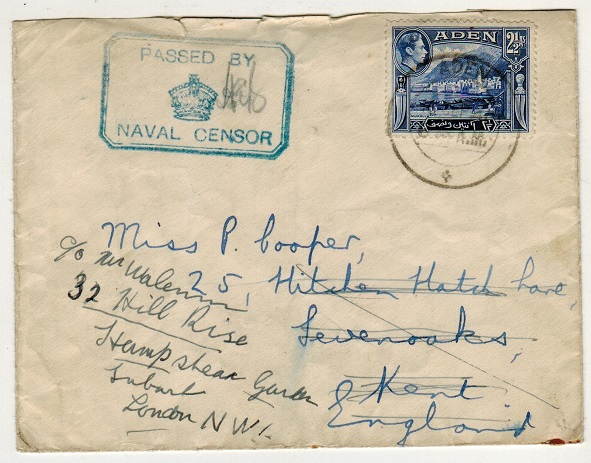 PASSED BY
NAVAL CENSOR
ADEN
2½ As
ADEN
Miss P. Cooper,
25, Hitchen Hatch Lane,
Sevenoaks,
Kent
England
c/o Mr
32 Hill Rise
Hampstead Garden
Suburb
London N W1.